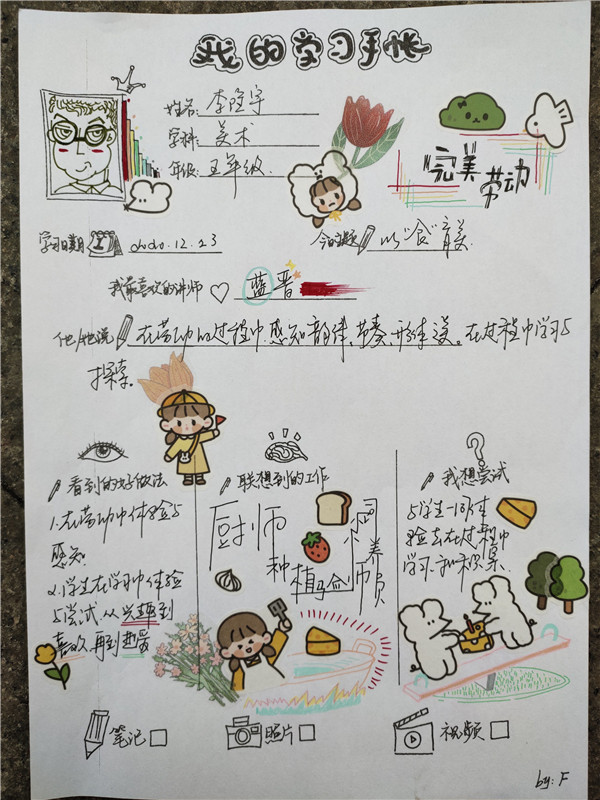 我的学习手帐
姓名: 李隆宇
学科: 美术
年级: 五年级
完美
劳动
学习日期 2020.12.23
今日主题 以“食”育美
我最喜欢的讲师 蓝晋
他/她说 在劳动的过程中,感知韵律、节奏、形体美。在过程中学习与
探索。
看到的好做法
1.在劳动中体验与
感知
2.学生在学习中体验
与尝试.从兴趣到
喜欢再到热爱
联想到的工作
厨师
种植
饲养员
我想尝试
与学生一同体
验去在过程中
学习和积累.
笔记
照片
视频
by: F